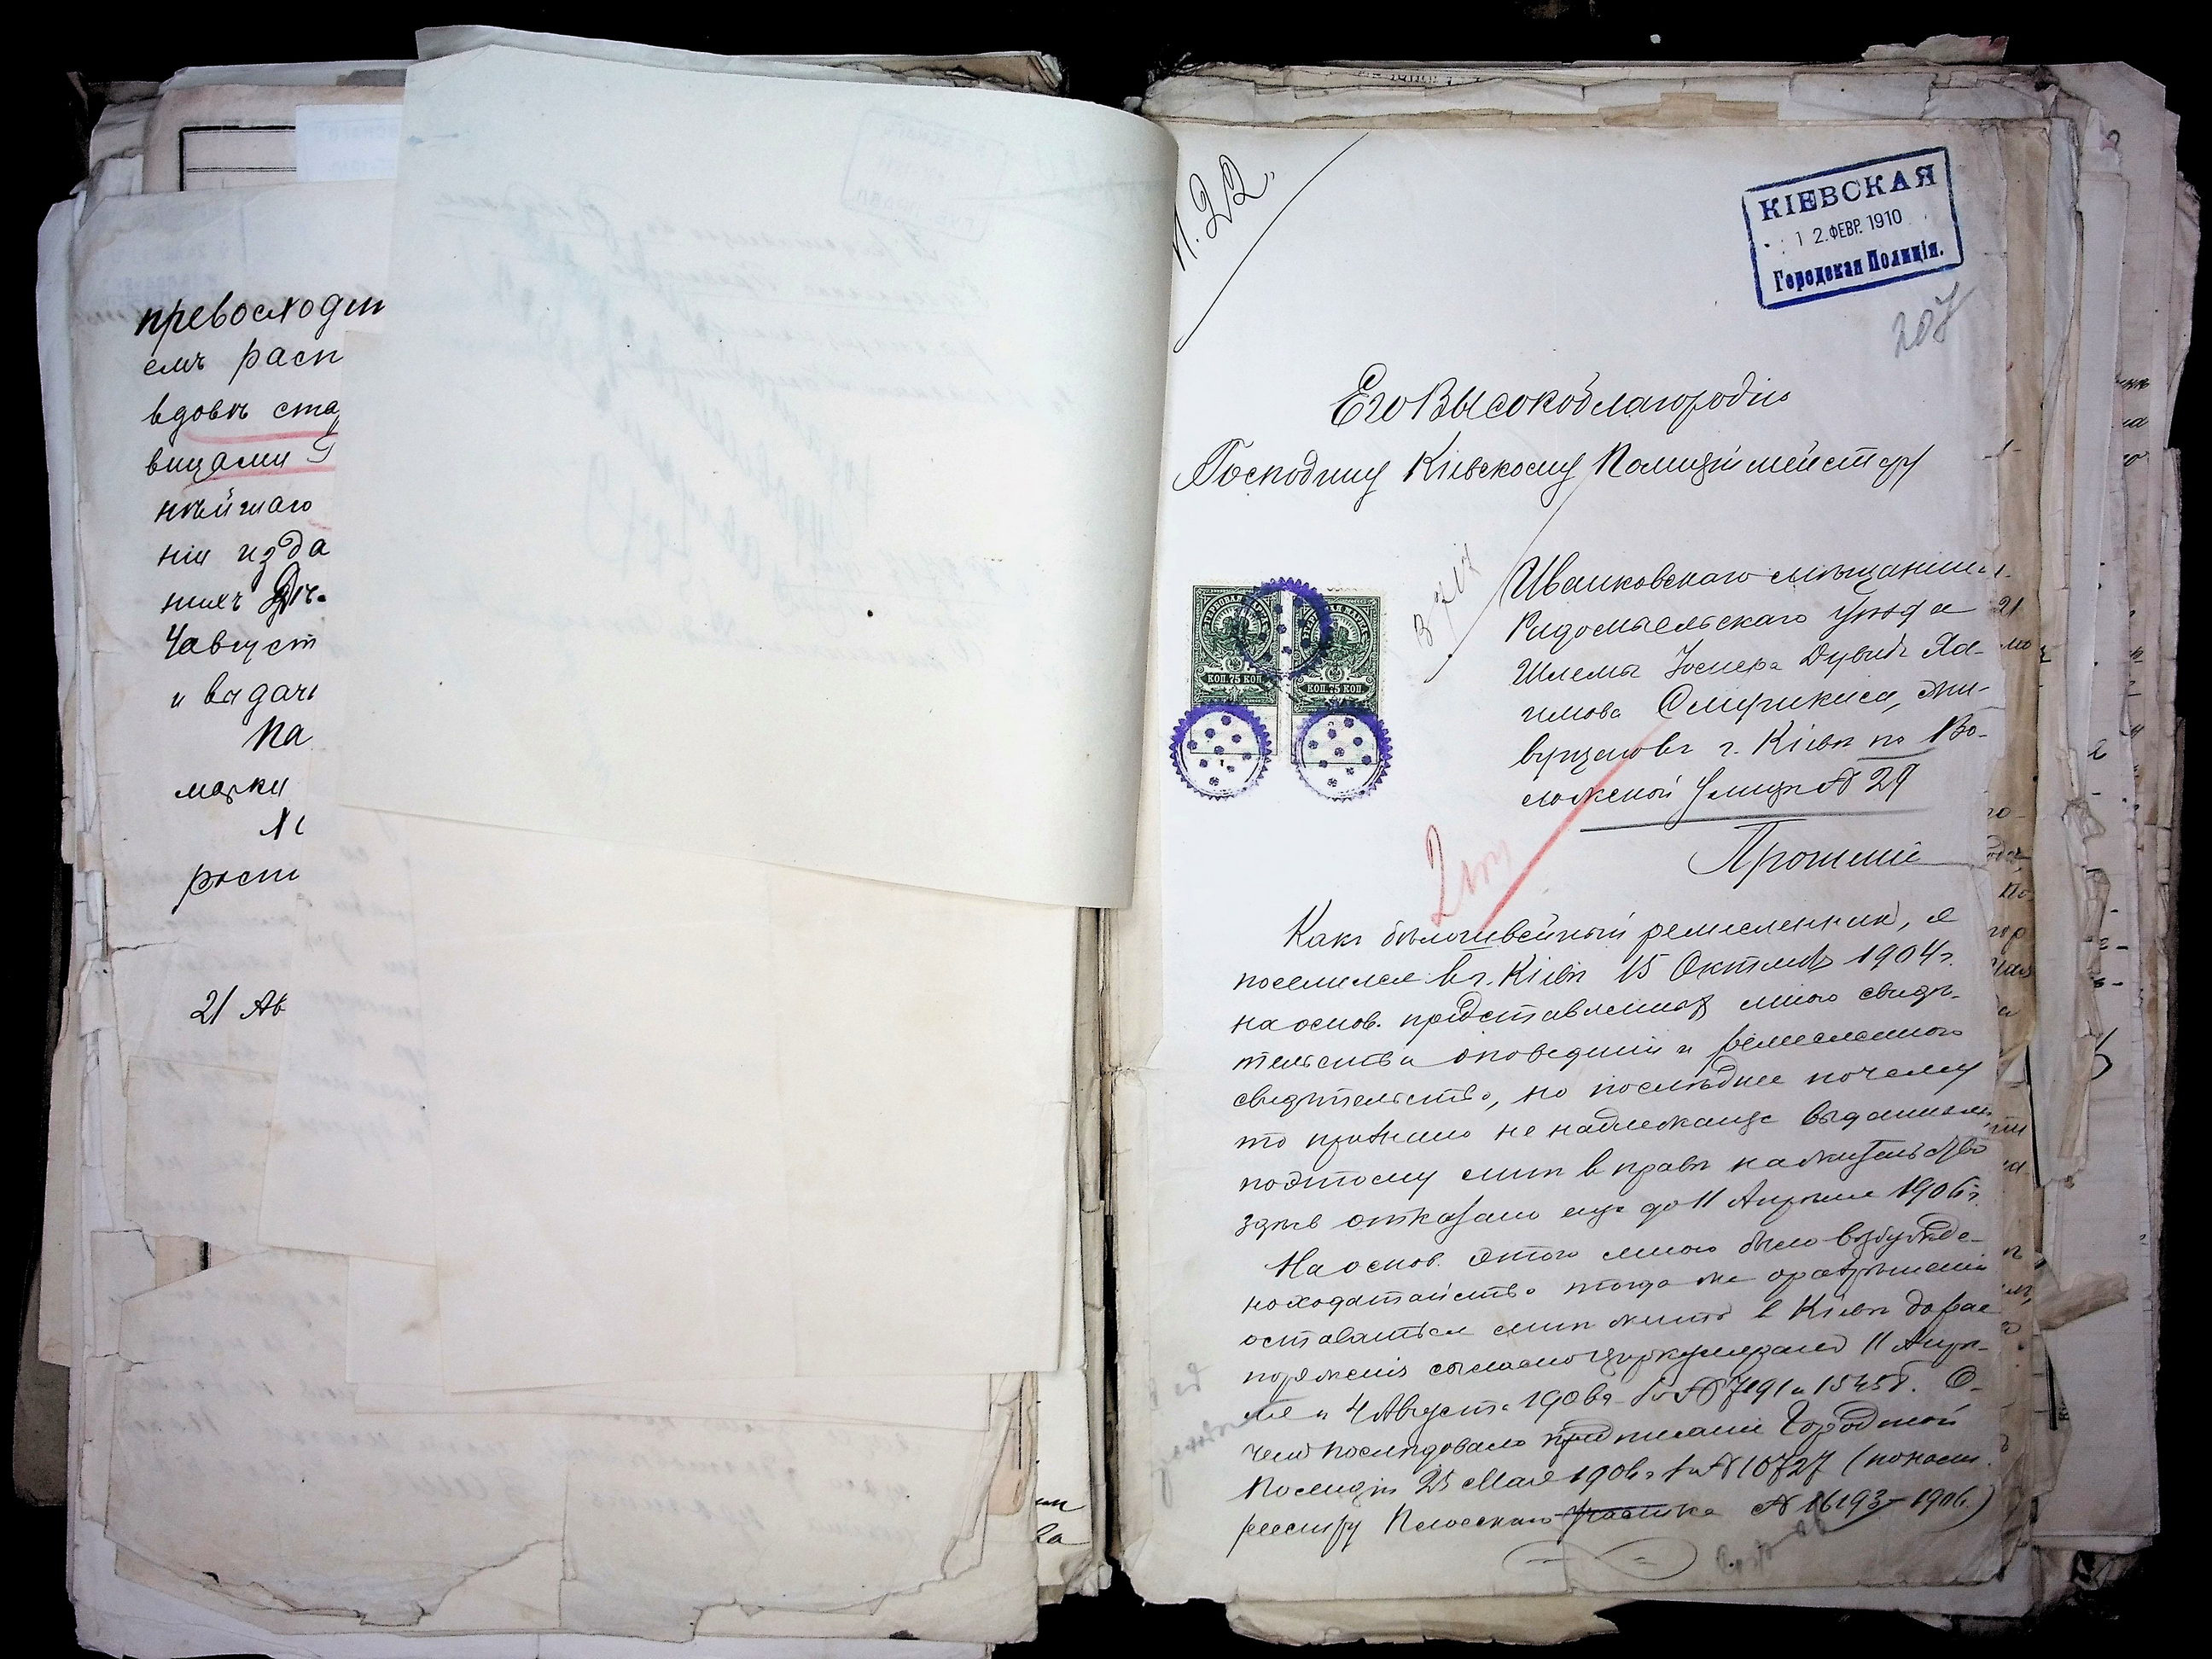 превосходит
емъ расп
вдовѣ ста
вицами
нѣйшаго
нія изда
нихъ
4 август
и выдачи
На
марки
рости
21 Ав
КІЕВСКАЯ
12. ФЕВР. 1910
Городская Полиція.
207
Его Высокоблагородію
Господину Кіевскому Полиціймейстеру
КОП. 75 КОП.
КОП. 75 КОП.
Иванковскаго мѣщанина
Радомысльскаго уѣзда
Шлемы Дувидъ Ха-
имова жи-
вущаго въ г. Кіевѣ по Во-
ложской улицѣ № 29
Прошеніе
Какъ бѣлошвейный ремесленник, я
поселился въ г. Кіевѣ 15 Октября 1904 г.
на основ. представленных мною свидѣ-
тельства о поведеніи и ремесленного
свидѣтельства, но послѣднее почему
то признано не надлежаще выданным
поэтому мнѣ в правѣ на жительство
здѣсь отказано еще до 11 Апрѣля 1906 г.
На основ. этого мною было возбужде-
но ходатайство тогда же о разрѣшеніи
оставаться мнѣ жить в Кіевѣ до рас
поряженія согласно циркулярамъ 11 Апрѣ-
ля и 4 Августа 1906 г. за № 7191 и 15458. О
чем послѣдовало предписаніе Городской
Полиціи 25 Мая 1906 г. за № 10727 (по наст.
реестру Плосскаго участка № 16193 - 1906)